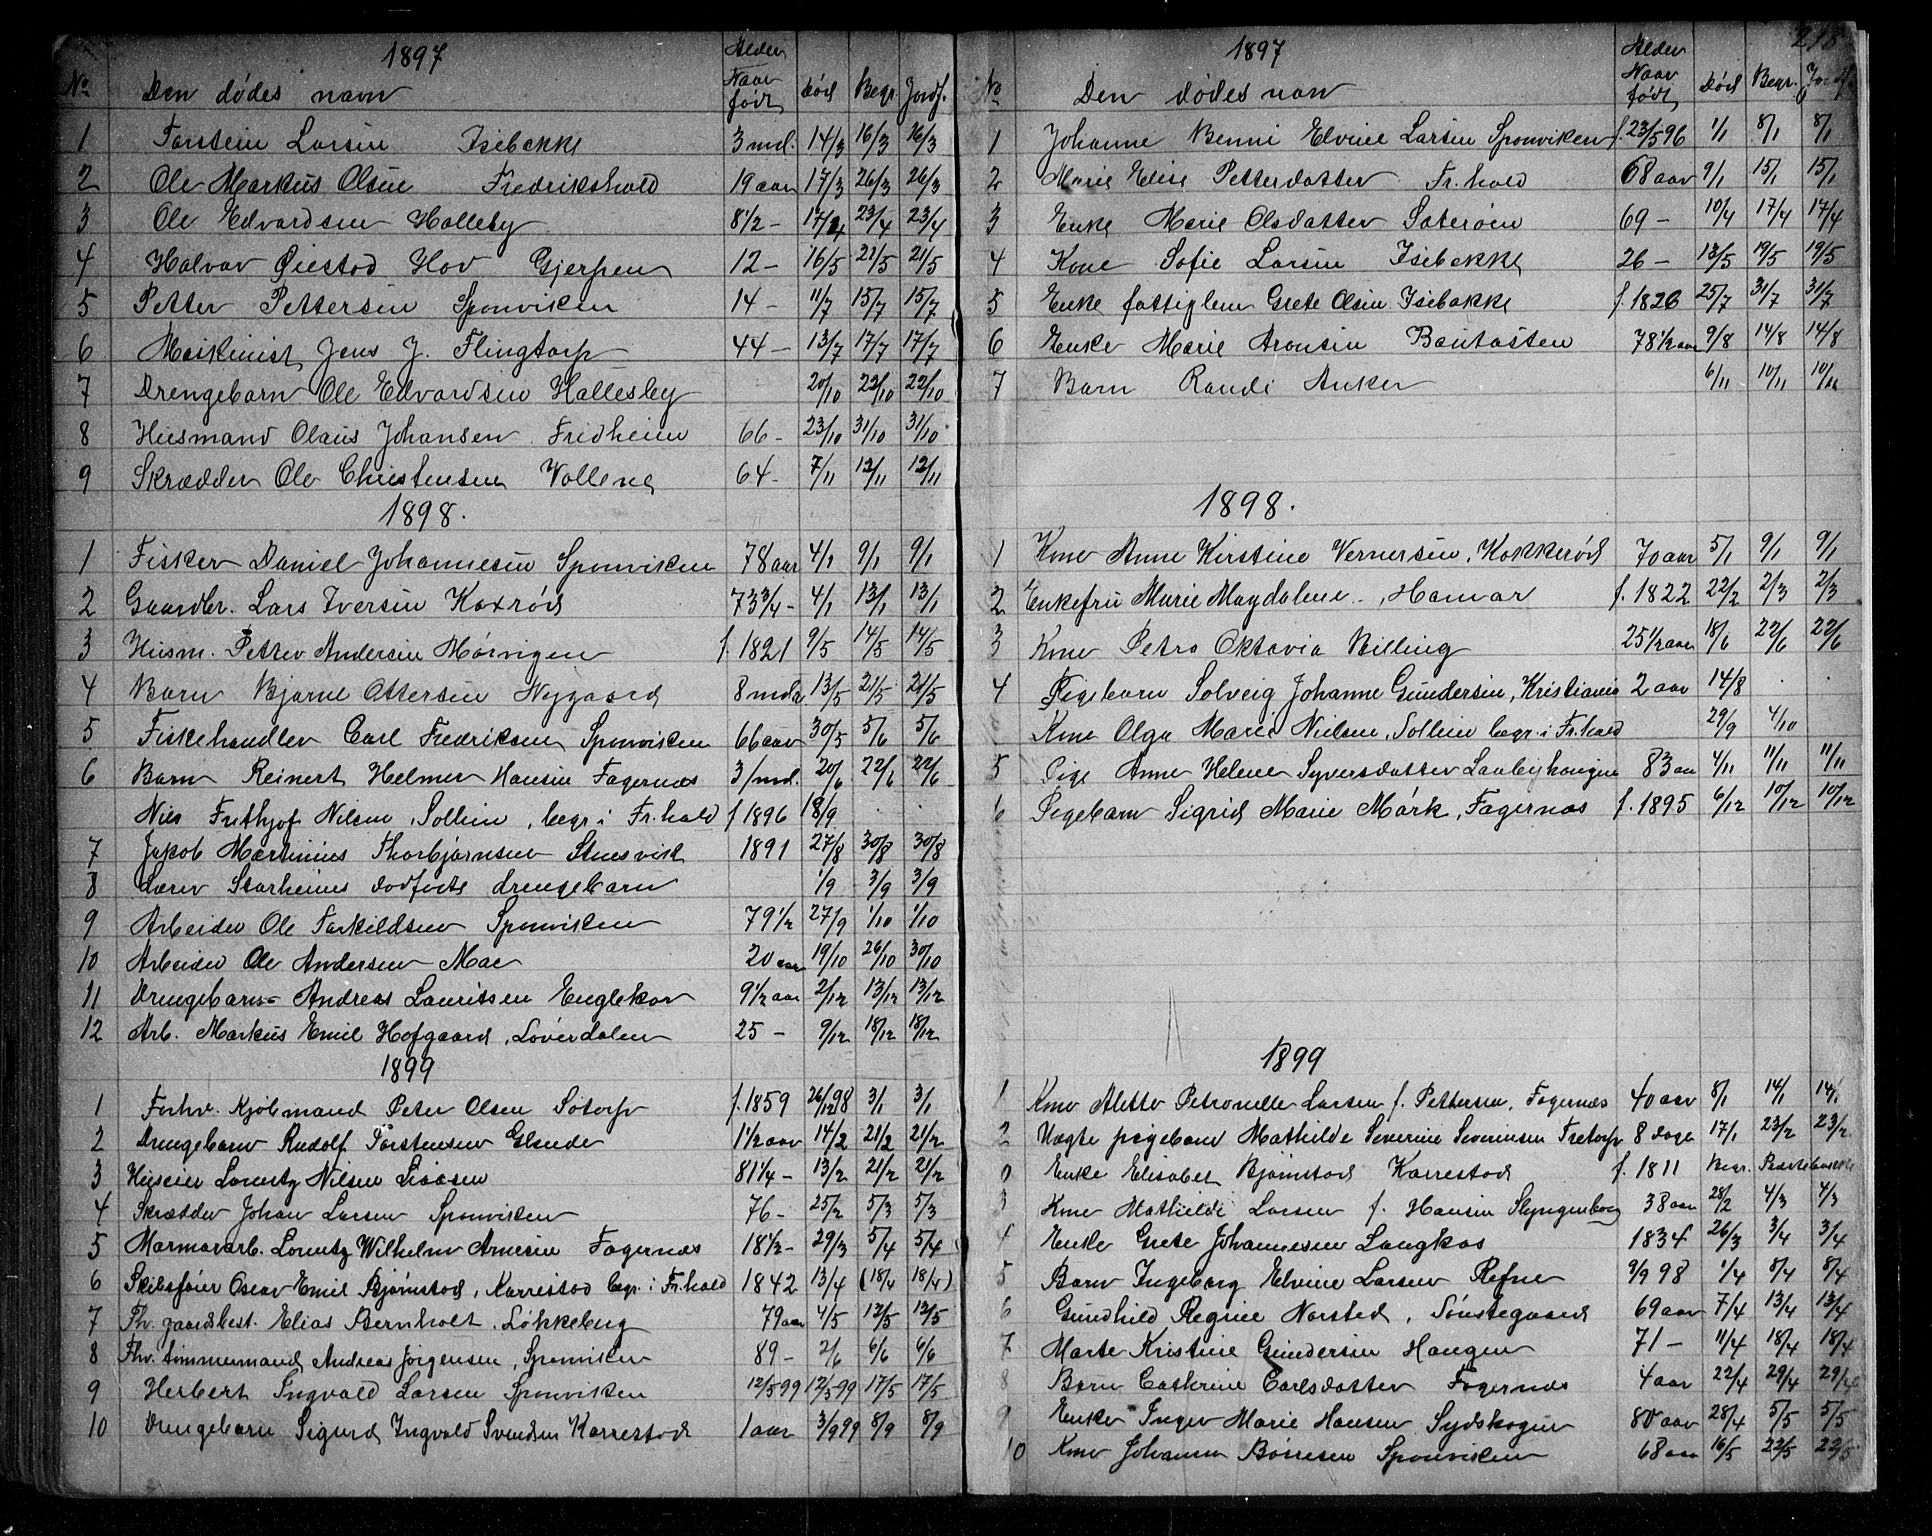 1897
No Den dødes navn Alder Naar født Død Begr. Jordf.
1 Torstein Larsen Isebakke 3 md. 14/3 16/3 26/3
2 Ole Markus Olsen Fredrikshald 19 aar 17/3 26/3 26/3
3 Ole Edvardsen Halleby 8 1/2 - 23/4 23/4
4 Halvor Øiestad Hov Gjerpen 12 - 16/5 21/5 21/5
5 Petter Pettersen Sponviken 14 - 11/7 15/7 15/7
6 Maskinist Jens J. Flingtorp 44 - 13/7 17/7 17/7
7 Drengebarn Ole Edvardsen Hallesby 20/10 22/10 22/10
8 Husmand Olaus Johansen Fridheim 66 - 23/10 31/10 31/10
9 Skrædder Ole Christensen Vollene 64 - 7/11 12/11 12/11
1898.
1 Fisker Daniel Johannesen Sponviken 78 aar 4/1 9/1 9/1
2 Gaardbr. Lars Iversen Koxrød 73 3/4 - 4/1 13/1 13/1
3 Husm. Petter Andersen Mørvigen f. 1821 9/5 14/5 14/5
4 Barn Bjarne Ottersen Nygaard 8 mdr 13/5 21/5 21/5
5 Fiskehandler Carl Fredriksen, Sponviken 66 aar 30/5 5/6 5/6
6 Barn Reinert Helmer Hansen Fagernæs 3 md. 20/6 22/6 22/6
Nils Frithjof Nilsen, Sollien, begr. i Fr.hald f 1896 18/9
7 Jakob Martinius Thorbjørnsen Stensvik 1891 27/8 30/8 30/8
8 Lærer Starheims dødfødte drengebarn 1/9 3/9 3/9
9 Arbeider Ole Torkildsen Sponviken 79 1/2 27/9 1/10 1/10
10 Arbeider Ole Andersen Mae 20 aar 19/10 26/10 30/10
11 Drengebarn Andreas Lauritsen Englekor 9 1/2 aar 2/12 13/12 13/12
12 Arb. Markus Emil Hofgaard, Løverdalen 25 - 9/12 18/12 18/12
1899
1 Forhv. Kjøbmand Peter Olsen Søtorp f. 1859 26/12 98 3/1 3/1
2 Drengebarn Rudolf Torstensen Elsnde 1 1/2 aar 14/2 21/2 21/2
3 Huseier Lorentz Nilsen Liaasen 81 1/4 - 13/2 21/2 21/2
4 Skrædder Johan Larsen Sponviken 76 - 25/2 5/3 5/3
5 Marmorarb. Lorentz Wilhelm Arnesen Fagernæs 18 1/2 - 29/3 5/4 5/4
6 Skibsfører Oscar Emil Bjørnstad, Karrestad begr. i Fr.hald 1842 13/4 (18/4 18/4)
7 Fhv. gaardbest. Elias Bernholt, Løkkeberg 79 aar 4/5 12/5 12/5
8 Fhv. tømmermand Andreas Jørgensen, Sponviken 89 - 2/6 6/6 6/6
9 Herbert Ingvald Larsen Sponviken 12/5 99 12/5 99 17/5 17/5
10 Drengebarn Sigurd Ingvald Svendsen Karrestad 1 aar 3/9 99 8/9 8/9
218
1897
No Den dødes navn Alder Naar født Død Begr. Jordf.
1 Johanne Benni Elvine Larsen Sponviken f. 23/5 96 1/1 8/1 8/1
2 Marie Elise Petterdatter Fr.hald 68 aar 9/1 15/1 15/1
3 Enke Marie Olsdatter Sæterøen 69 - 10/4 17/4 17/4
4 Kone Sofie Larsen Isebakke 26 - 13/5 19/5 19/5
5 Enke fattiglem Grete Olsen Isebakke f. 1826 25/7 31/7 31/7
6 Enke Marie Aronsen Bautasten 78 1/2 aar 9/8 14/8 14/8
7 Barn Randi Anker 6/11 10/11 10/11
1898.
1 Kone Anne Kirstine Vernersen, Kokkerød 70 aar 5/1 9/1 9/1
2 Enkefru Marie Magdalene - , Hamar f. 1822 22/2 2/3 2/3
3 Kone Petra Oktavia Billing 25 1/2 aar 18/6 22/6 22/6
4 Pigebarn Solveig Johanne Gundersen, Kristiania 2 aar 14/8
Kone Olga Marie Nielsen, Sollien begr. i Fr.hald 29/9 4/10
5 Pige Anne Helene Syversdatter Laabyhaugen 83 aar 4/11 11/11 11/11
6 Pigebarn Sigrid Marie Mørk, Fagernæs f. 1895 6/12 10/12 10/12
1899
1 Kone Alette Petronelle Larsen f. Pettersen, Fagernæs 40 aar 8/1 14/1 14/1
2 Uægte pigebarn Mathilde Severine Severinsen Tretorp 8 dage 17/1 23/2 23/2
0 Enke Elisabet Bjørnstad Karrestad f. 1811 Begr.
3 Kone Mathilde Larsen f. Hansen Slyngenborg 38 aar 28/2 4/3 4/3
4 Enke Grete Johannesen Langkas 1834 26/3 3/4 3/4
5 Barn Ingeborg Elvine Larsen Refne 9/9 98 1/4 8/4 8/4
6 Gundhild Regine Norsted, Tønstegaard 69 aar 7/4 13/4 13/4
7 Marte Kristine Gundersen Haugen 71 - 11/4 18/4 18/4
8 Barn Cathrine Carlsdatter Fagernæs 4 aar 22/4 29/4 29/4
9 Enke Inger Marie Hansen Sydskogen 80 aar 28/4 5/5 5/5
10 Kone Johanna Børresen Sponviken 68 aar 16/5 22/5 22/5